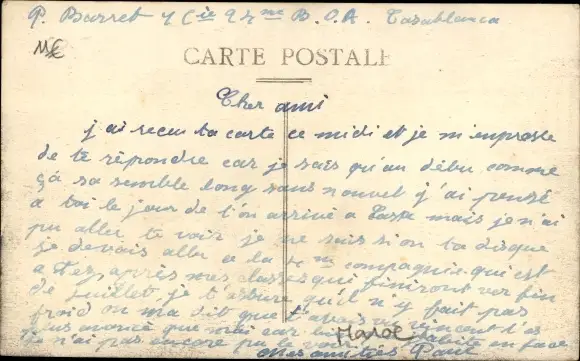 P. Barret 7 Cie 24me B.O.A. Casablanca
CARTE POSTALE
Cher ami
j'ai recu ta carte ce midi et je m'enpresse
de te répondre car je sais qu'au débu comme
ça sa semble long sans nouvel j'ai pensé
a toi le jour de t'on arrivé a mais je n'ai
pu aller te voir je ne sais si on ta disque
je devais aller a la me compagnie qui est
a Fez, après mes classes qui finiront ver fin
de juillet, je t'assure qu'il n'y fait pas
froid on ma dit que t'avais
plus avancé que moi car en face
je n'ai pas encore pu le voir
mes amitiés Paul
Maroc